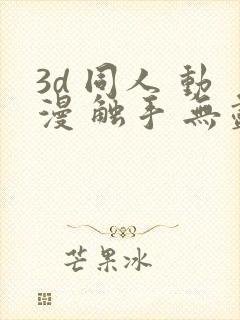 3d 同人 動
漫 触手 無
芒果冰